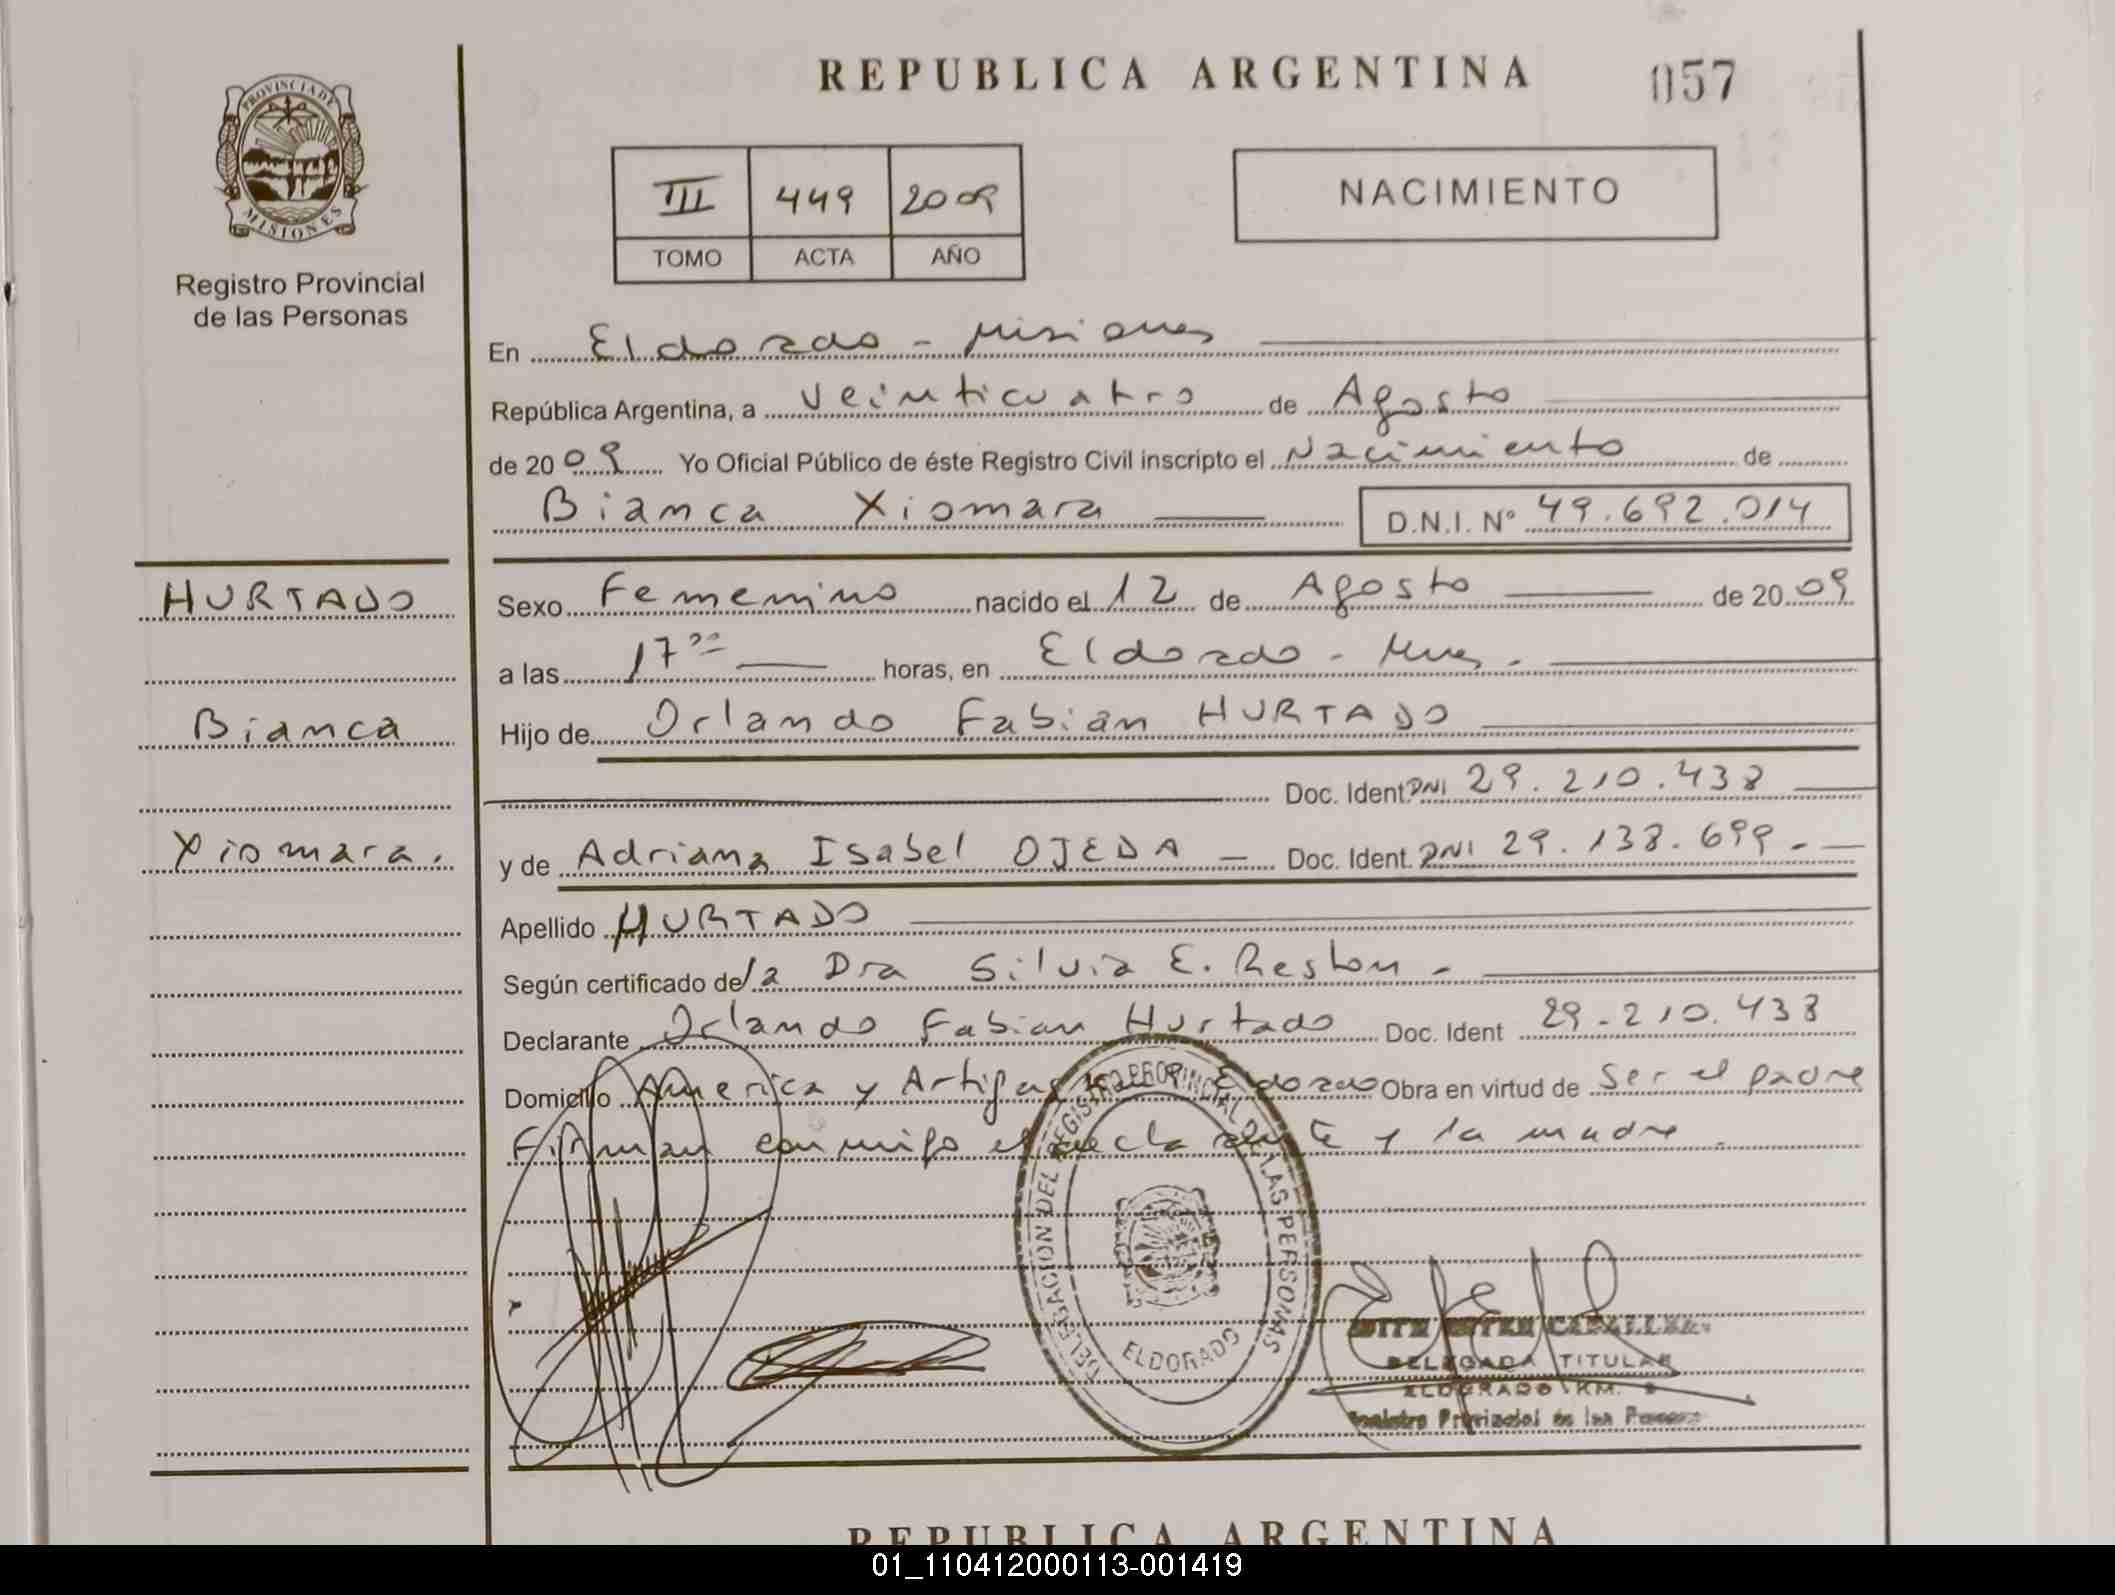 REPUBLICA ARGENTINA
057
PROVINCIA DE
MISIONES
Registro Provincial
de las Personas
III 449 2009
TOMO ACTA AÑO
NACIMIENTO
En Eldorado - Misiones
República Argentina, a veinticuatro de Agosto
de 20 09 Yo Oficial Público de éste Registro Civil inscripto el Nacimiento de
Bianca Xiomara D.N.I. Nº 49.692.014
HURTADO
Bianca
Xiomara.
Sexo Femenino nacido el 12 de Agosto de 20 09
a las 17 horas, en Eldorado - Mnes.
Hijo de Orlando Fabian HURTADO
Doc. Ident. DNI 29.210.438
y de Adriana Isabel OJEDA Doc. Ident. DNI 29.138.699.-
Apellido HURTADO
Según certificado de la Dra Silvia E. Reston -
Declarante Orlando Fabian Hurtado Doc. Ident 29-210.438
Domicilio America y Artigas Eldorado Obra en virtud de ser el padre
Firman conmigo el declarante y la madre.
DELEGACION DEL REGISTRO PROVINCIAL DE LAS PERSONAS
ELDORADO
DELEGADA TITULAR
ELDORADO KM.
Registro Provincial de las Personas
REPUBLICA ARGENTINA
01_110412000113-001419